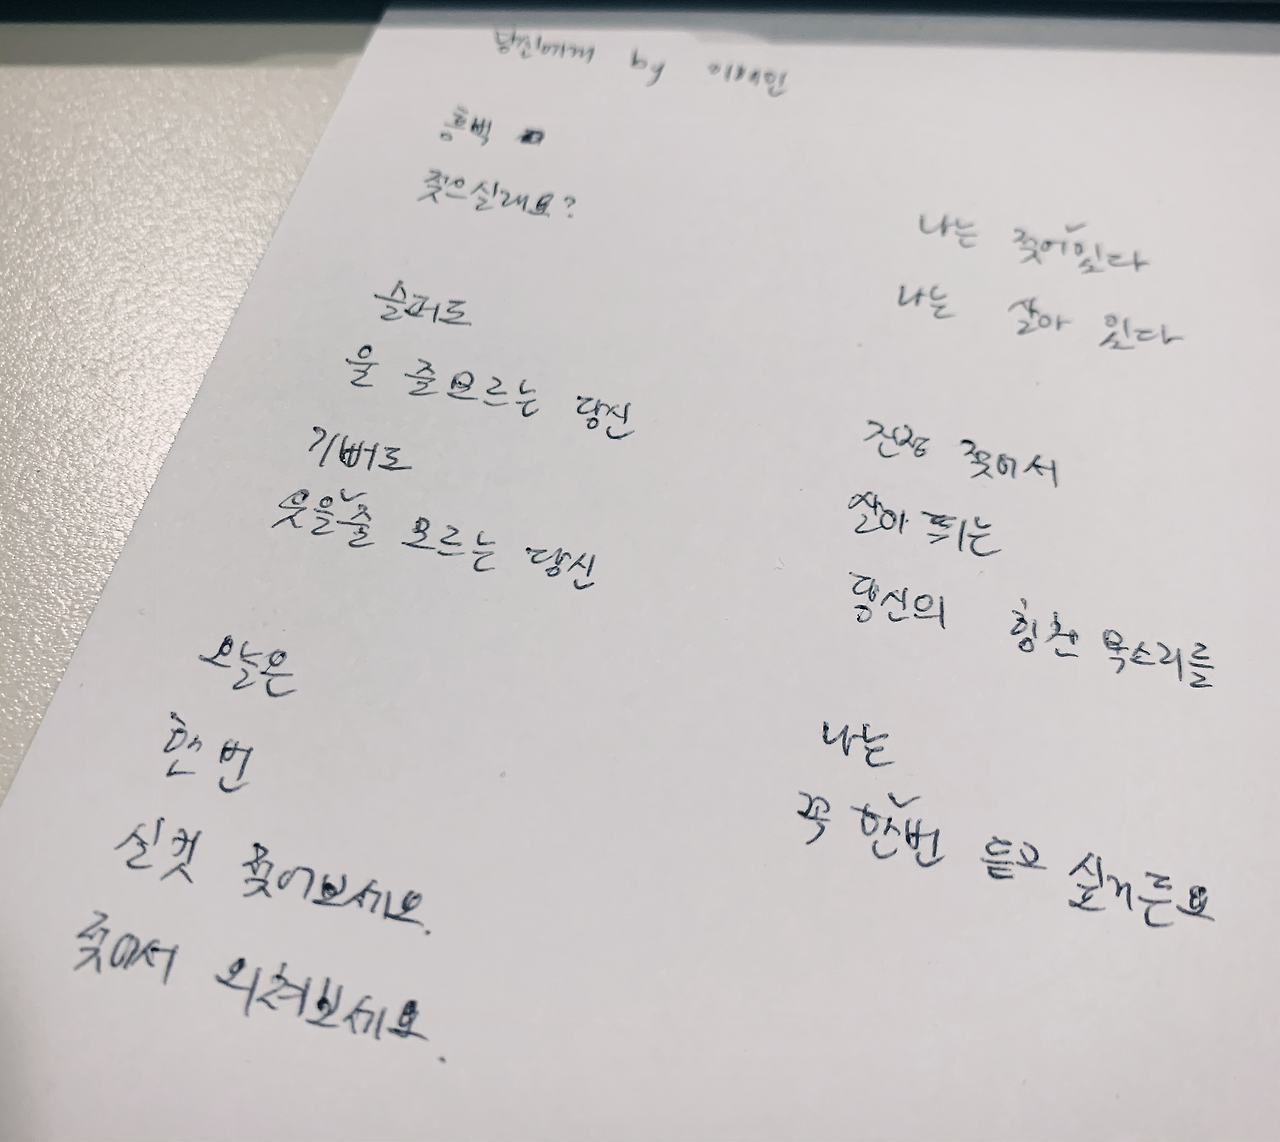 당신에게 by 이해인
흠뻑
젖으실래요?
슬퍼도
울 줄모르는 당신
기뻐도
웃을줄 모르는 당신
오늘은
한 번
실컷 젖어보세요.
젖어서 외쳐보세요.
나는 젖어있다
나는 살아 있다
진정 젖어서
살아 뛰는
당신의 힘찬 목소리를
나는
꼭 한번 듣고 싶거든요